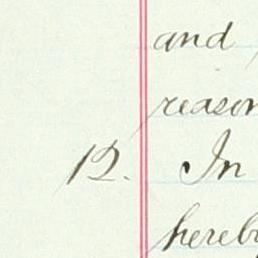 and
reason
12. In
hereby